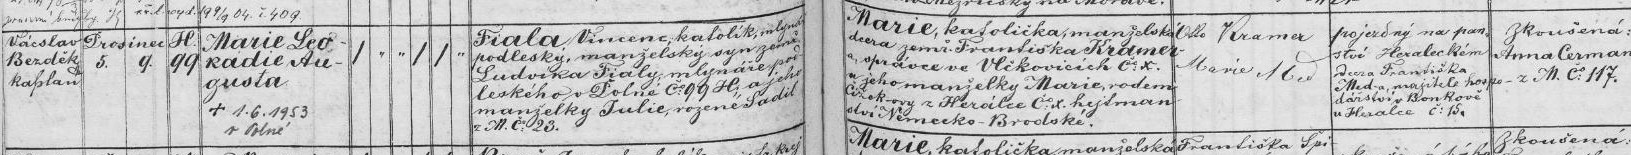 vyd. 19/9 04. č. 409.
Vácslav
Bezděk
kaplan
Prosinec
5. 9.
H.
99
Marie Leo-
kadie Au-
gusta
+ 1.6.1953
v Polné
Fiala, Vincenc, katolík, mlynář
podleský, manželský syn zemř.
Ludvíka Fialy, mlynáře pod-
leského v Polné Čº 99 H, a jeho
manželky Julie, rozené Sadil
z M. Čº 23.
Marie, katolička, manželská
dcera zemř. Františka Kramer-
a, správce ve Vlčkovicích Čº x.
a jeho manželky Marie, rodem
z Herálce Čº x. hejtman-
ství Německo-Brodské.
Otto Kramer
Marie
pojezdný na pan-
ství Heraleckém
dcera Františka
v Bonkově
u Herálce č: 15.
Zkoušená:
Anna Cerman
z M. Čº 117.
Marie, katolička, manželská
Františka
Zkoušená: